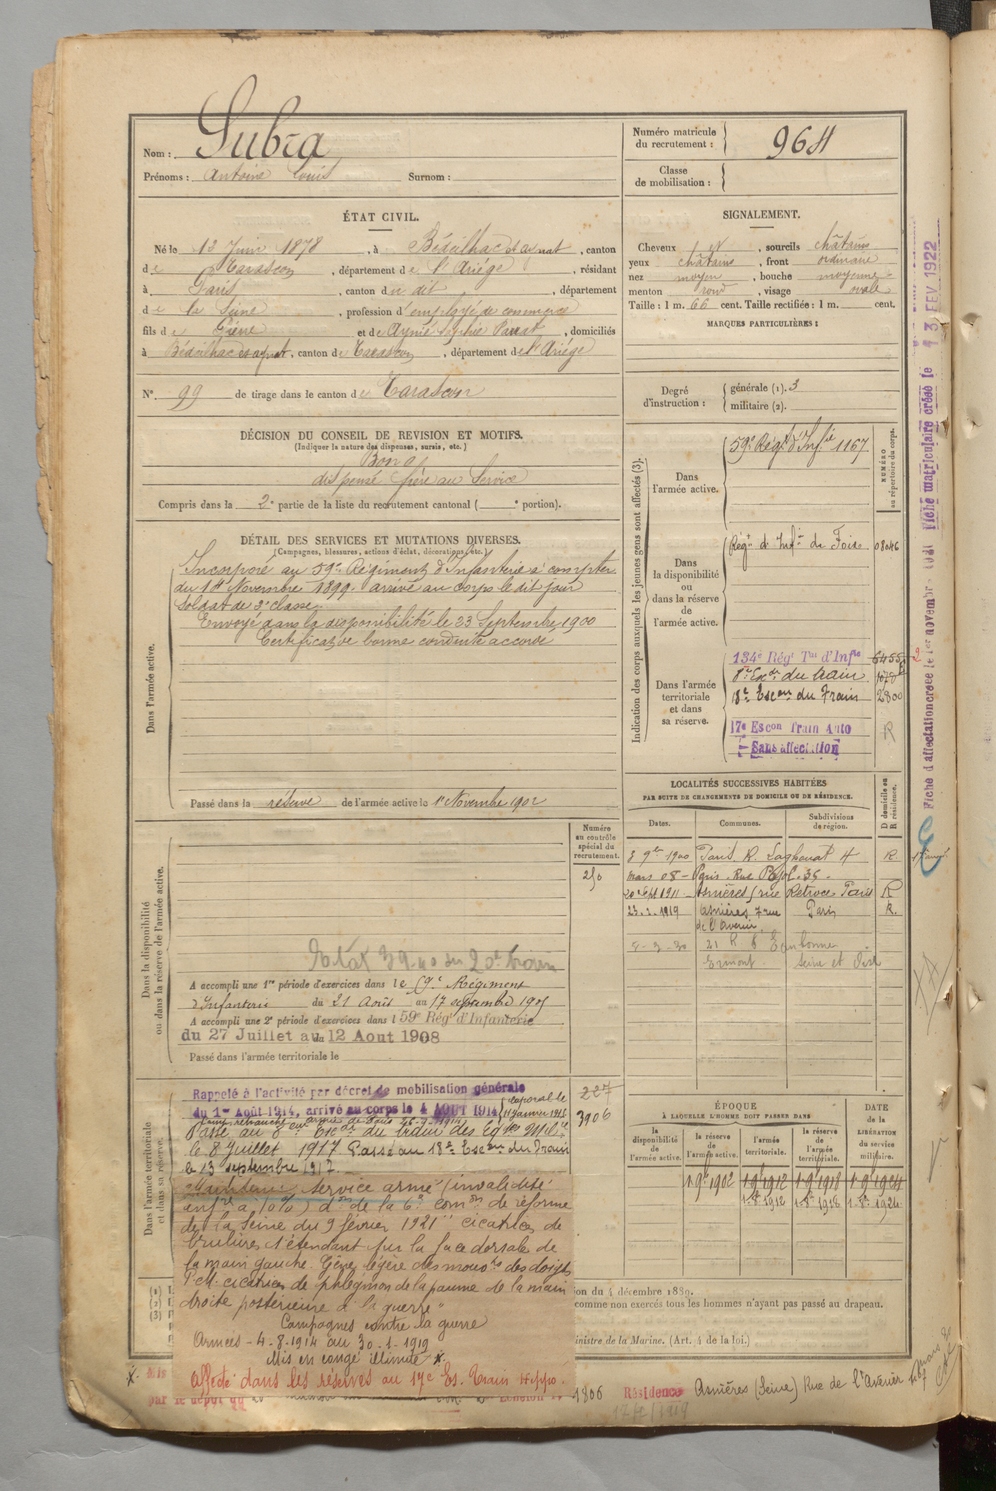 Nom : Subra
Prénoms : Antoine Louis Surnom :
Numéro matricule du recrutement : 964
Classe de mobilisation :
ÉTAT CIVIL.
Né le 13 Juin 1878, à Bédeilhac et Aynat, canton
de Tarascon, département de l'Ariége, résidant
à Paris, canton du dit, département
de la Seine, profession d'employé de commerce
fils de Pierre et de Aynié Sophie, domiciliés
à Bédeilhac et aynat, canton de Tarascon, département de l'Ariége
N° 99 de tirage dans le canton de Tarascon
SIGNALEMENT.
Cheveux et, sourcils châtains
yeux châtains, front ordinaire
nez moyen, bouche moyenne
menton rond, visage ovale
Taille : 1 m. 66 cent. Taille rectifiée : 1 m. cent.
MARQUES PARTICULIÈRES :
Degré d'instruction : générale (1). 3
militaire (2).
DÉCISION DU CONSEIL DE REVISION ET MOTIFS.
(Indiquer la nature des dispenses, sursis, etc.)
Bon
dispensé frère au Service
Compris dans la 2e partie de la liste du recrutement cantonal ( e portion).
DÉTAIL DES SERVICES ET MUTATIONS DIVERSES.
(Campagnes, blessures, actions d'éclat, décorations, etc.)
Dans l'armée active.
Incorporé au 59e Régiment d'Infanterie à compter
du 14 Novembre 1899. arrivé au corps le dit jour
soldat de 2e classe.
Envoyé dans la disponibilité le 23 Septembre 1900
Certificat de bonne conduite accordé
Passé dans la réserve de l'armée active le 1er Novembre 1902
Indication des corps auxquels les jeunes gens sont affectés (3).
NUMÉRO au répertoire du corps.
Dans l'armée active.
59e Régt d'Infie 1167
Dans la disponibilité ou dans la réserve de l'armée active.
Régt d'Infie de Foix 08046
Dans l'armée territoriale et dans sa réserve.
134e Régt Tal d'Infie
8e Escon du train
18e Escon du Train 2800
17e Escon Train Auto R
Sans affectation
LOCALITÉS SUCCESSIVES HABITÉES
PAR SUITE DE CHANGEMENTS DE DOMICILE OU DE RÉSIDENCE.
D domicile ou R résidence.
Dates. Communes. Subdivisions de région.
3 9bre 1900 Paris R. Laghouat 4 R.
mars 08 - Paris. Rue Pajol. 35 -
20 Sept 1911 - Asnières rue Retrou Paris R
23.2.1919 Asnières 7 rue de l'avenir Paris R.
8-3-30 21 R Eaubonne
Ermont Seine et Oise
Dans la disponibilité ou dans la réserve de l'armée active.
Numéro au contrôle spécial du recrutement.
250
A accompli une 1re période d'exercices dans le 59e Régiment
d'Infanterie du 21 Août au 17 septembre 1905
A accompli une 2e période d'exercices dans l 59e Rég' d'Infanterie
du 27 Juillet au 12 Aout 1908
Passé dans l'armée territoriale le
Dans l'armée territoriale et dans sa réserve.
Rappelé à l'activité par décret de mobilisation générale
du 1er Août 1914, arrivé au corps le 4 AOUT 1914
caporal le 11 Janvier 1915
227
3906
Passé au 8e Escon du train des Eq Mil
le 8 Juillet 1917 Passé au 18e Escon du Train
le 13 septembre 1917.
Maintenu service armé (invalidité
infre à 10%) don de la 6e comon de réforme
de la Seine du 9 février 1921 "cicatrices de
brulures s'étendant sur la face dorsale de
la main gauche. Gêne légère des mouvts des doigts
2° cicatrices de phlegmon de la paume de la main
droite postérieure à la guerre"
Campagnes contre la guerre
Armées - 4-8-1914 au 30-1-1919
Mis en congé illimité *.
Affecté dans les réserves au 17e Es. Train Hippo.
ÉPOQUE
À LAQUELLE L'HOMME DOIT PASSER DANS
DATE DE LA LIBÉRATION du service militaire.
la disponibilité de l'armée active. la réserve de l'armée active. l'armée territoriale. la réserve de l'armée territoriale.
1 9bre 1902 1 9 1912 1 9 1918 1 9 1924
1 8 1912 1 8 1918 1 8 1924
(1)
(2)
(3)
on du 4 décembre 1889.
comme non exercés tous les hommes n'ayant pas passé au drapeau.
inistre de la Marine. (Art. 4 de la loi.)
par le dépôt
1806 Résidence Asnières (Seine) Rue de l'Avenir
Fiche d'affectation créée le 1er novembre
Fiche matriculaire créée le 13 FEV 1922